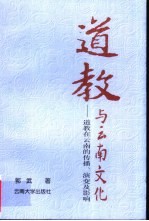 道教
与云南文化
——道教在云南的传播、演变及影响
郭武 著
云南大学出版社